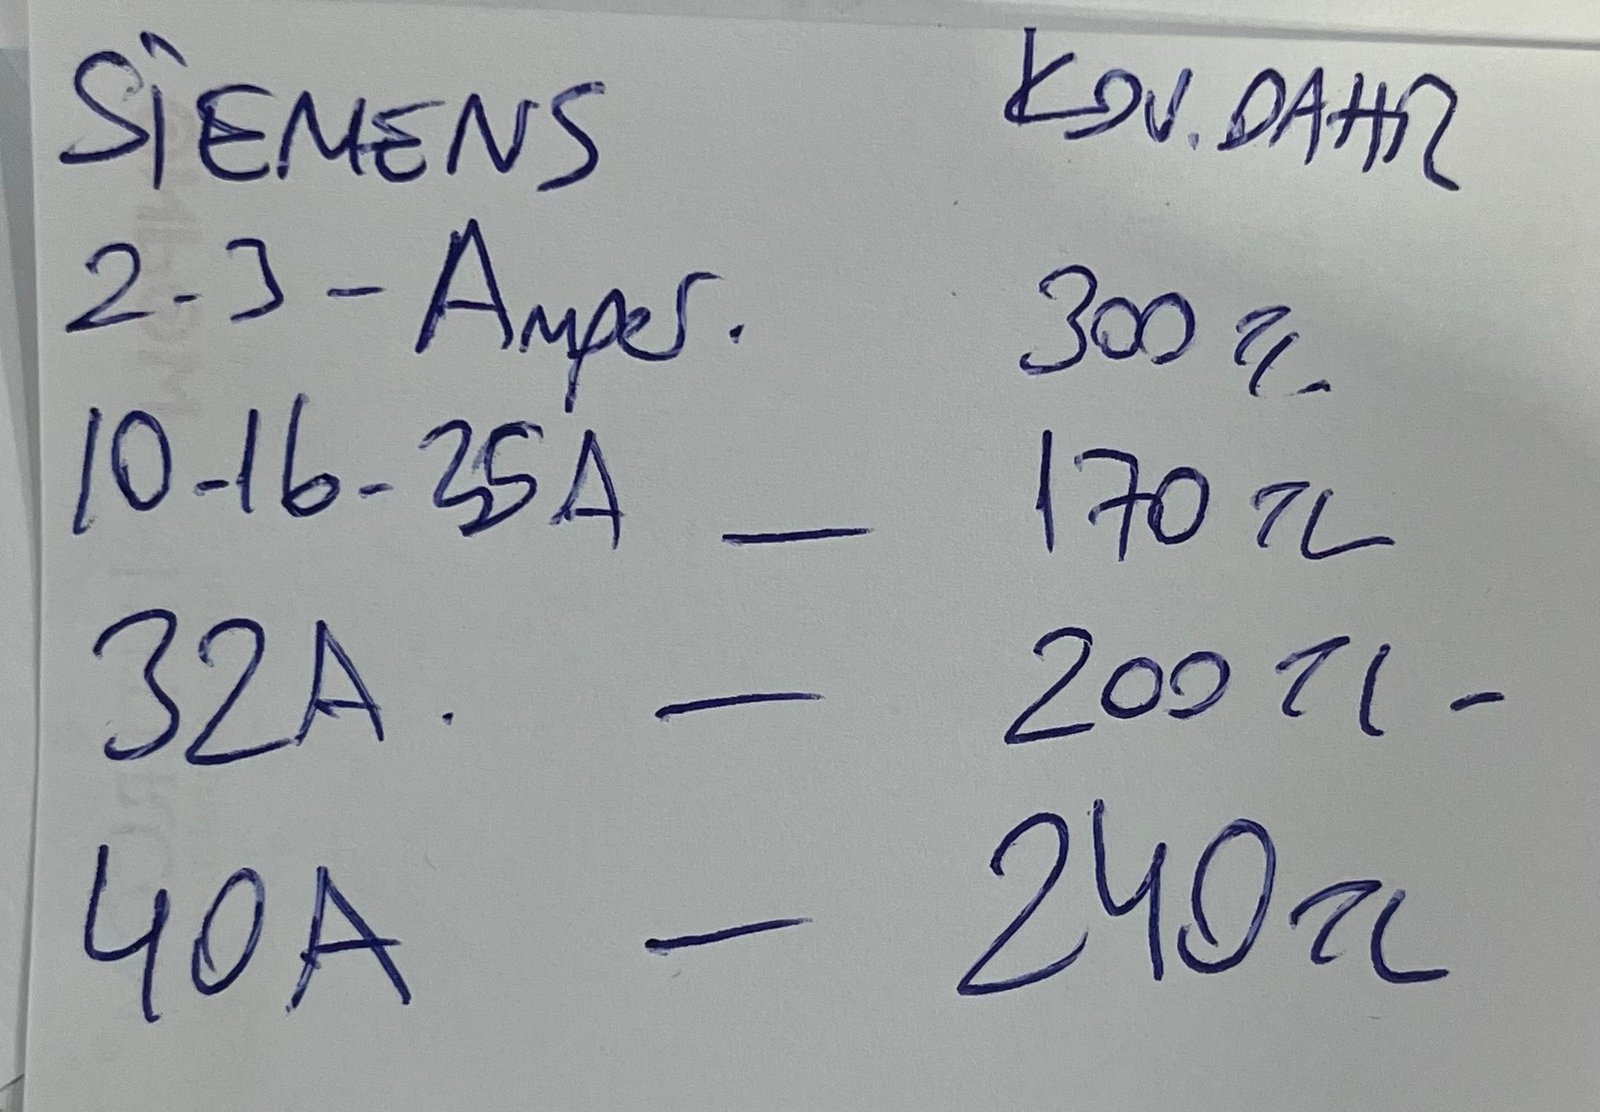 SİEMENS KDV. DAHİL
2-3-Amper. 300 TL.
10-16-25A — 170 TL
32A. — 200 TL -
40A — 240 TL